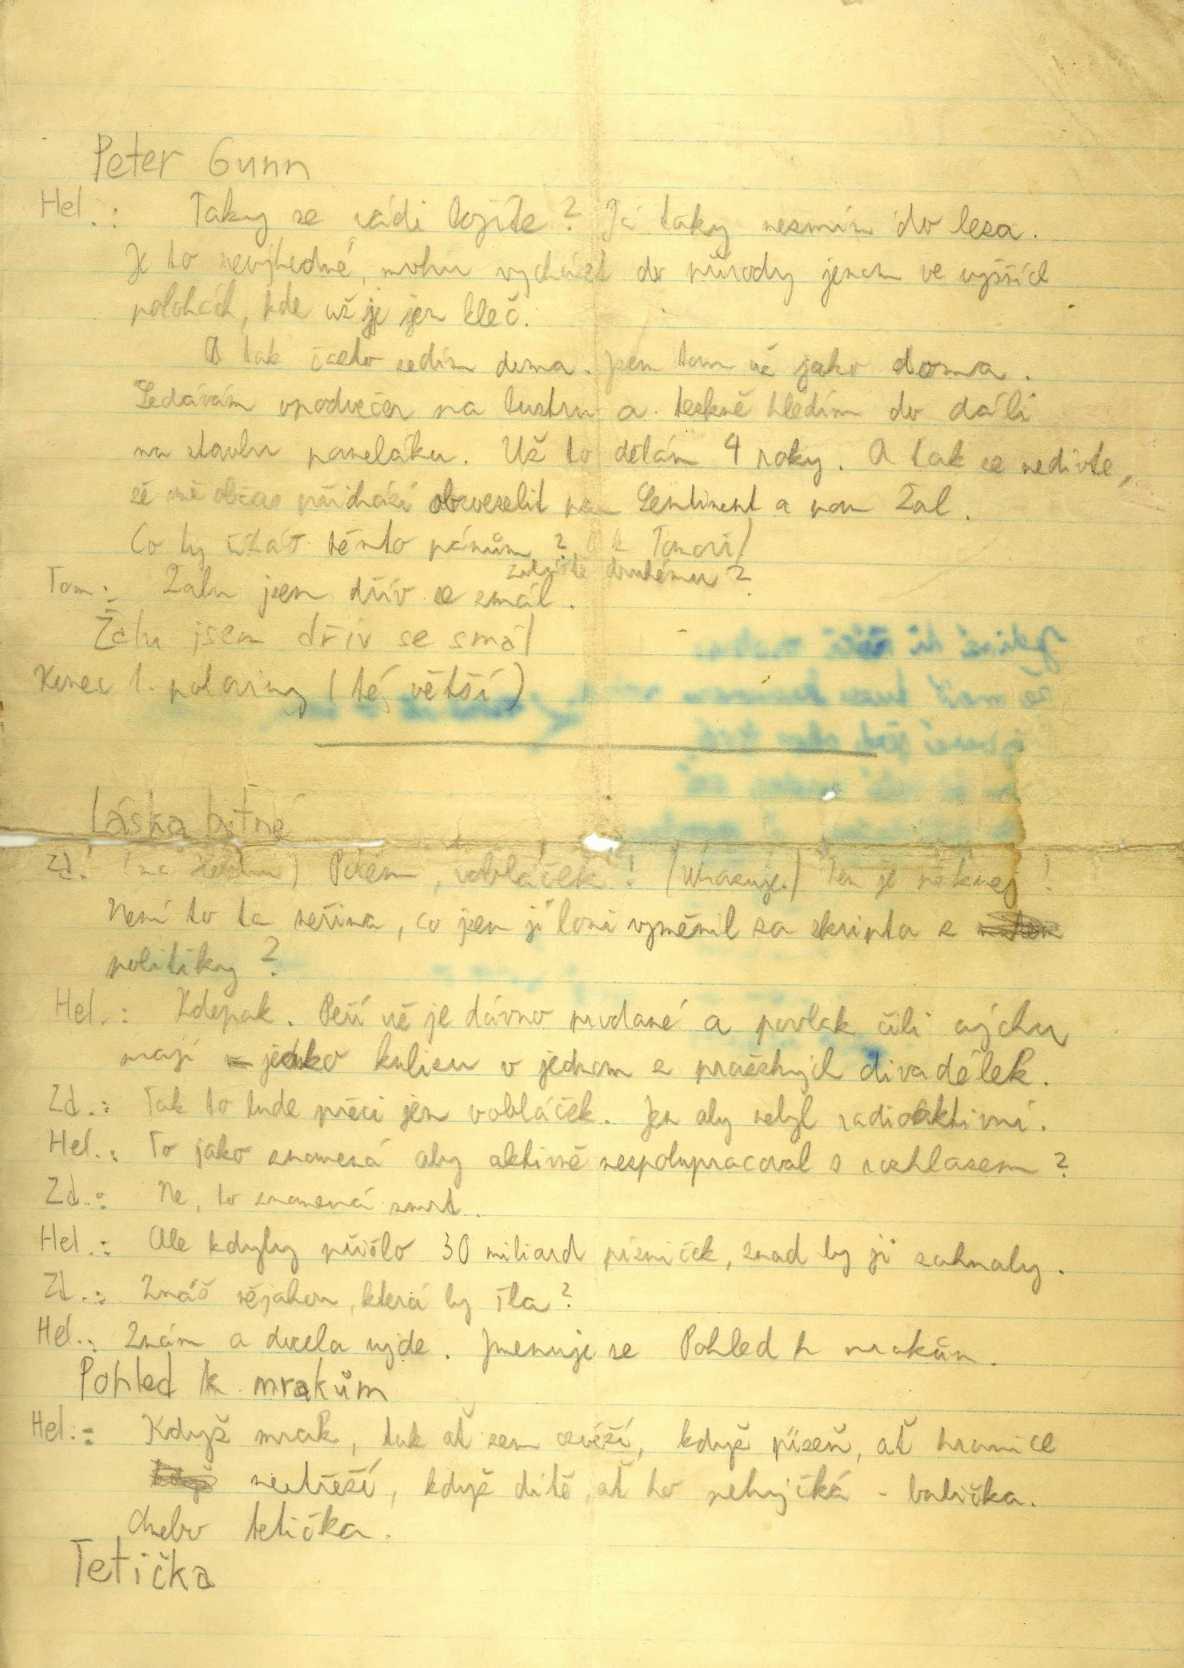 Peter Gunn
Hel.: Taky se rádi bojíte? Já taky nesmím do lesa.
Je to nevýhodné, mohu vycházet do přírody jenom ve vyšších
polohách, kde už je jen kleč.
A tak často sedím doma. Jsem tam už jako doma.
Sedávám vpodvečer na lustru a teskně hledím do dáli
na stavbu paneláku. Už to dělám 4 roky. A tak se nedivte,
že mě občas přichází obveselit pan Sentiment a pan Žal.
Co by řekl těmto pánům? Tomáši
Tom.: Žalu jsem dřív se smál.
druhému?
Žalu jsem dřív se smál
Konec 1. poloviny (té větší)
Láska bitná
Zd.: (na Helenu) Polem, vobláček! (Ukazuje.) Ten je něknej!
Není to ta peřina, co jsem ji loni vyměnil za skripta z
politiky?
Hel.: Kdepak. Peří už je dávno prodané a povlak čili sýchu
mají jako kulisu v jednom z pražských divadélek.
Zd.: Tak to bude přeci jen vobláček. Jen aby nebyl radioaktivní.
Hel.: To jako znamená aby aktivně nespolupracoval s rozhlasem?
Zd.: Ne, to znamená smrt.
Hel.: Ale kdyby přišlo 30 miliard písniček, snad by ji zahnaly.
Zd.: Znáš nějakou, která by šla?
Hel.: Znám a docela ujde. Jmenuje se Pohled k mrakům.
Pohled k mrakům
Hel.: Když mrak, tak ať sem osvěží, když píseň, ať hranice
nestřeží, když dítě, ať ho nehýčká - babička.
Anebo tetička.
Tetička